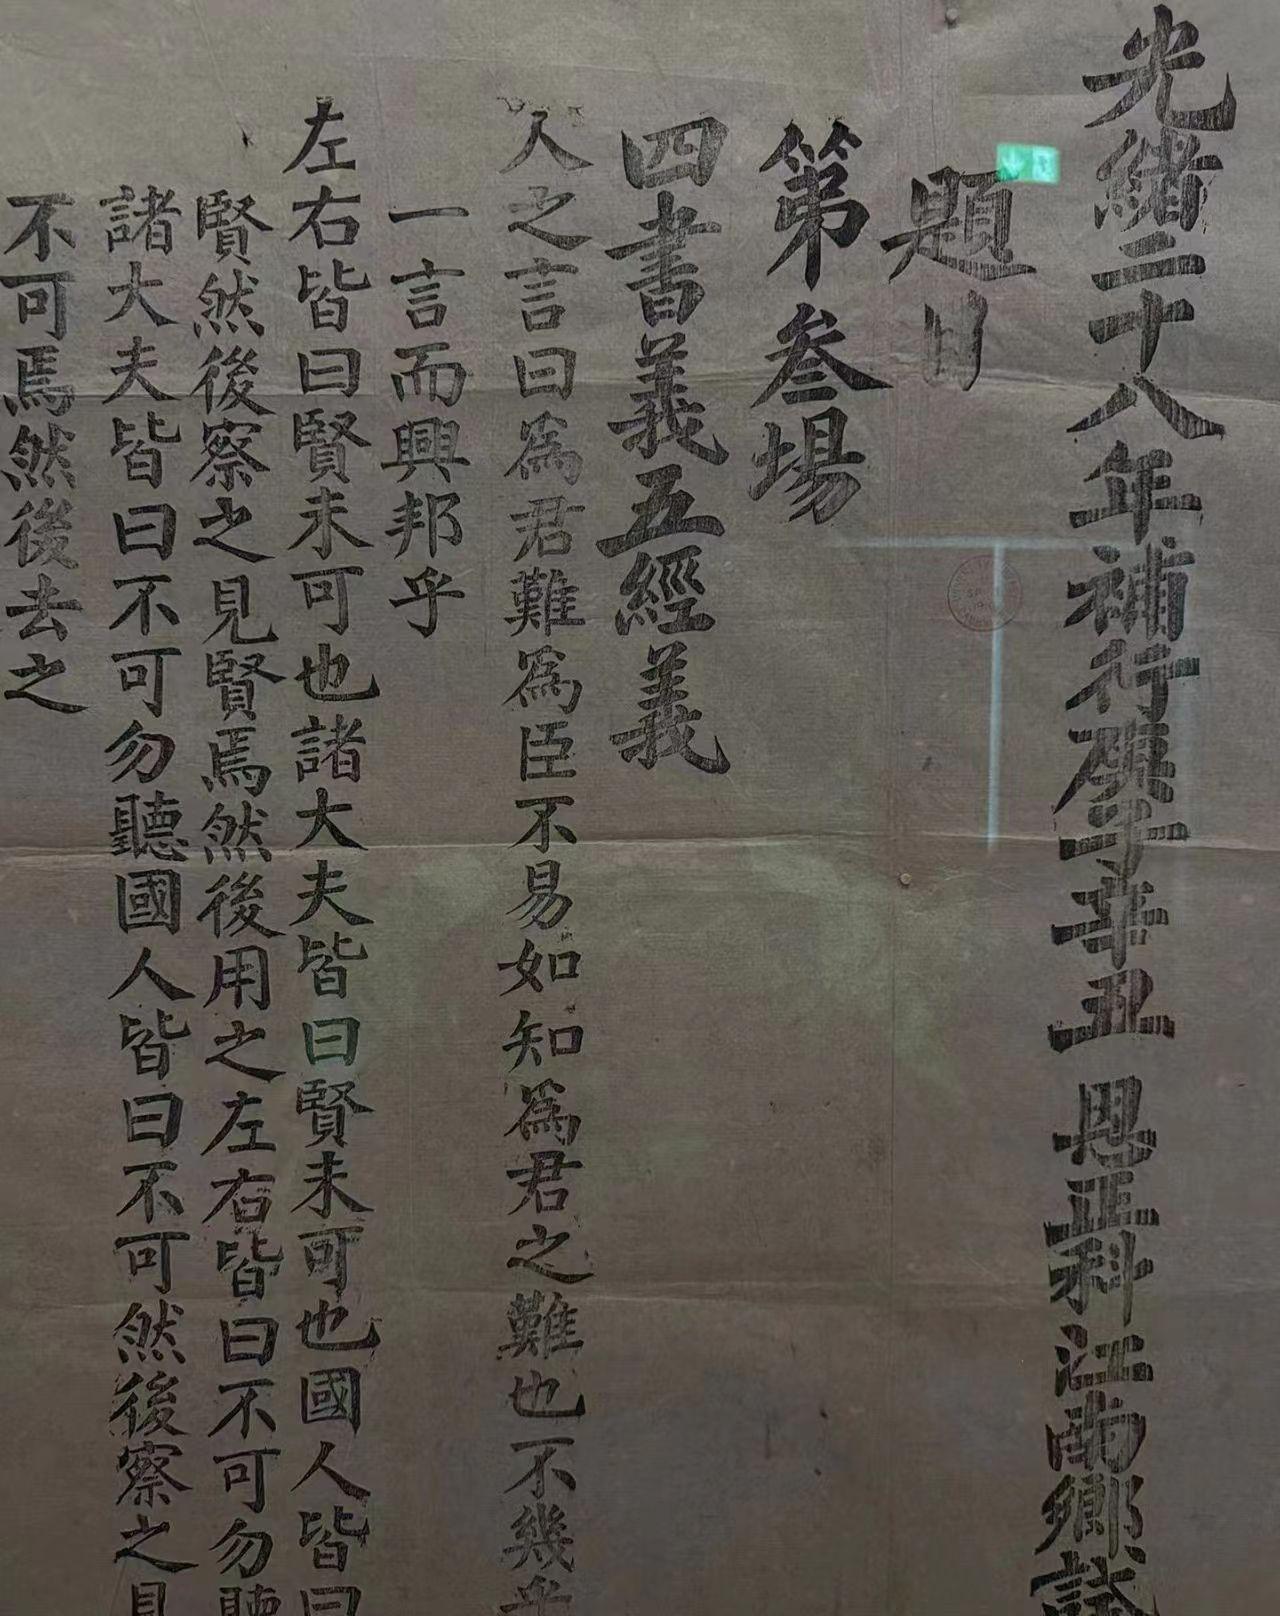 光緒二十八年補行庚子辛丑 恩正科江南鄉試
題目
第叁場
四書義五經義
人之言曰爲君難爲臣不易如知爲君之難也不幾乎
一言而興邦乎
左右皆曰賢未可也諸大夫皆曰賢未可也國人皆曰
賢然後察之見賢焉然後用之左右皆曰不可勿聽
諸大夫皆曰不可勿聽國人皆曰不可然後察之見
不可焉然後去之